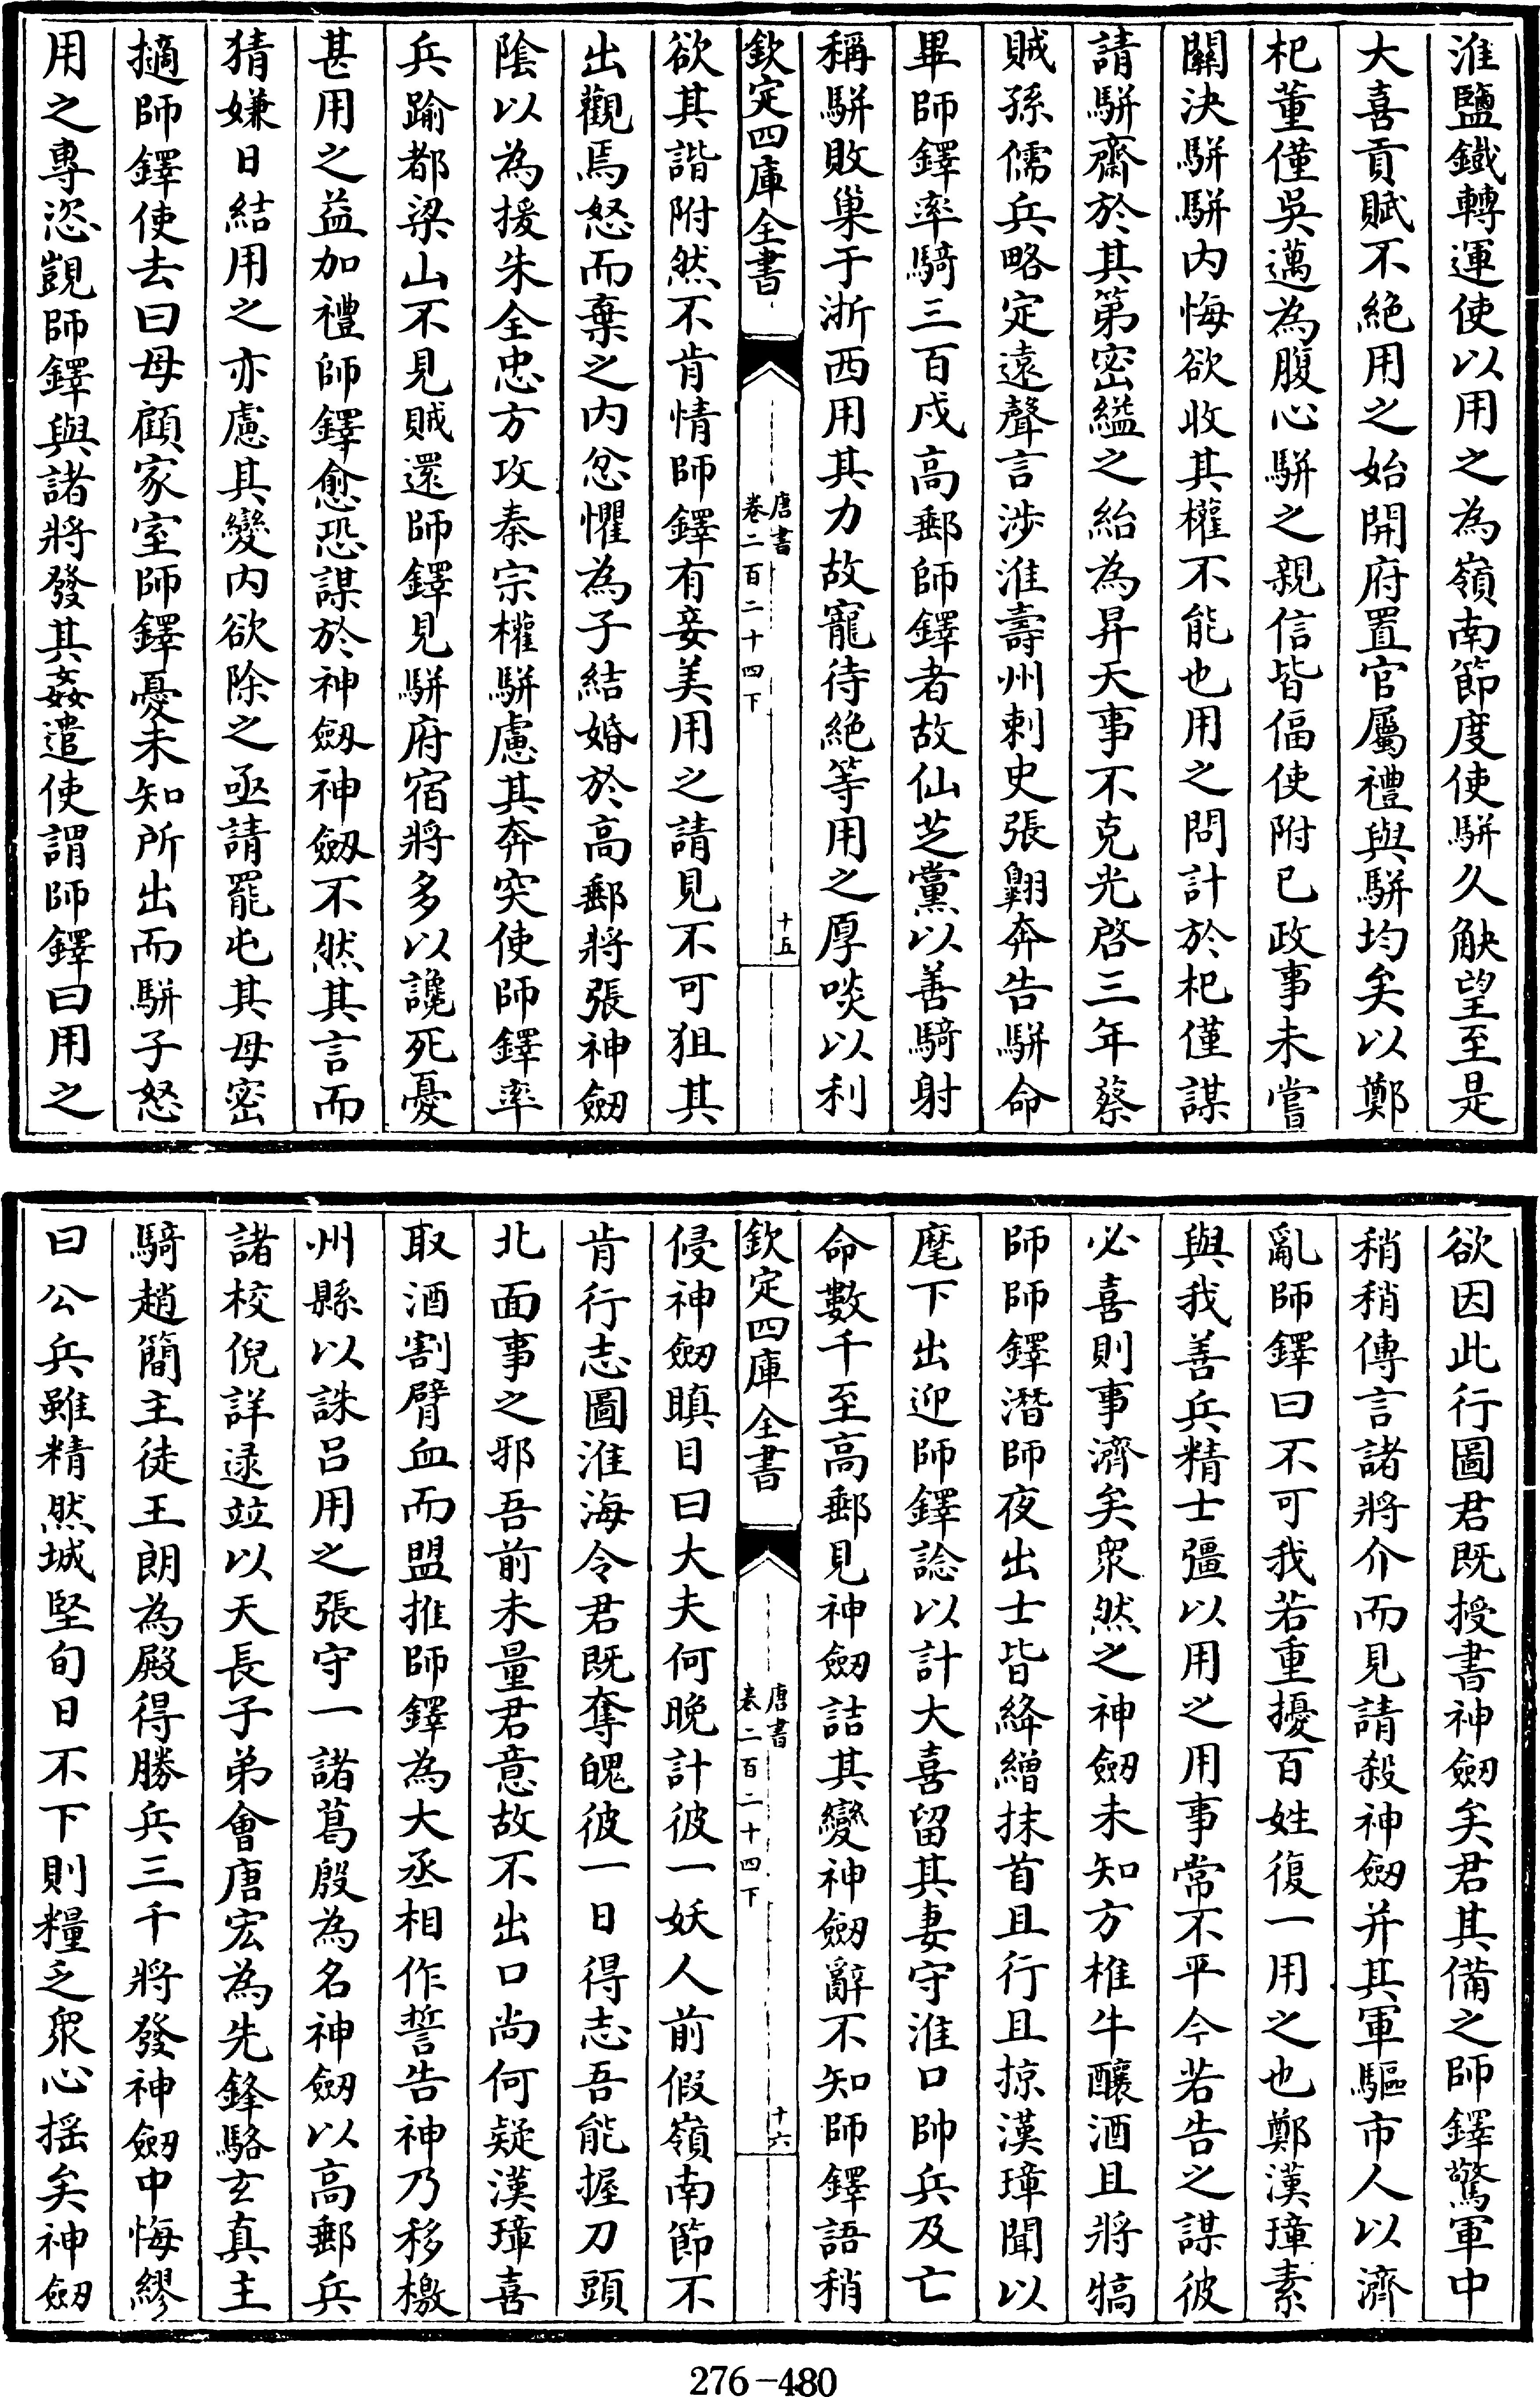 淮鹽鐵轉運使以用之為嶺南節度使駢久觖望至是
大喜貢賦不絶用之始開府置官屬禮與駢均矣以鄭
杞董僅吳邁為腹心駢之親信皆偪使附已政事未嘗
關決駢駢内悔欲收其權不能也用之問計於杞僅謀
請駢齋於其第密縊之紿為昇天事不克光啓三年蔡
賊孫儒兵略定遠聲言涉淮壽州刺史張翺奔告駢命
畢師鐸率騎三百戍高郵師鐸者故仙芝黨以善騎射
稱駢敗巢于浙西用其力故寵待絶等用之厚啖以利
欽定四庫全書
唐書
卷二百二十四下
十五
欲其諧附然不肯情師鐸有妾美用之請見不可狙其
出觀焉怒而棄之内忿懼為子結婚於高郵將張神劒
陰以為援朱全忠方攻秦宗權駢慮其奔突使師鐸率
兵踰都梁山不見賊還師鐸見駢府宿將多以讒死憂
甚用之益加禮師鐸愈恐謀於神劒神劒不然其言而
猜嫌日結用之亦慮其變内欲除之亟請罷屯其母密
擿師鐸使去曰母顧家室師鐸憂未知所出而駢子怒
用之專恣覬師鐸與諸將發其姦遣使謂師鐸曰用之
欲因此行圖君既授書神劒矣君其備之師鐸驚軍中
稍稍傳言諸將介而見請殺神劒并其軍驅市人以濟
亂師鐸曰不可我若重擾百姓復一用之也鄭漢璋素
與我善兵精士彊以用之用事常不平今若告之謀彼
必喜則事濟矣衆然之神劒未知方椎牛釀酒且將犒
師師鐸潛師夜出士皆絳繒抹首且行且掠漢璋聞以
麾下出迎師鐸諗以計大喜留其妻守淮口帥兵及亡
命數千至高郵見神劒詰其變神劒辭不知師鐸語稍
欽定四庫全書
唐書
卷二百二十四下
十六
侵神劒瞋目曰大夫何晚計彼一妖人前假嶺南節不
肯行志圖淮海令君既奪魄彼一日得志吾能握刀頭
北面事之邪吾前未量君意故不出口尚何疑漢璋喜
取酒割臂血而盟推師鐸為大丞相作誓告神乃移檄
州縣以誅吕用之張守一諸葛殷為名神劒以高郵兵
諸校倪詳逯竝以天長子弟會唐宏為先鋒駱玄真主
騎趙簡主徒王朗為殿得勝兵三千將發神劒中悔繆
曰公兵雖精然城堅旬日不下則糧乏衆心揺矣神劒
276-480